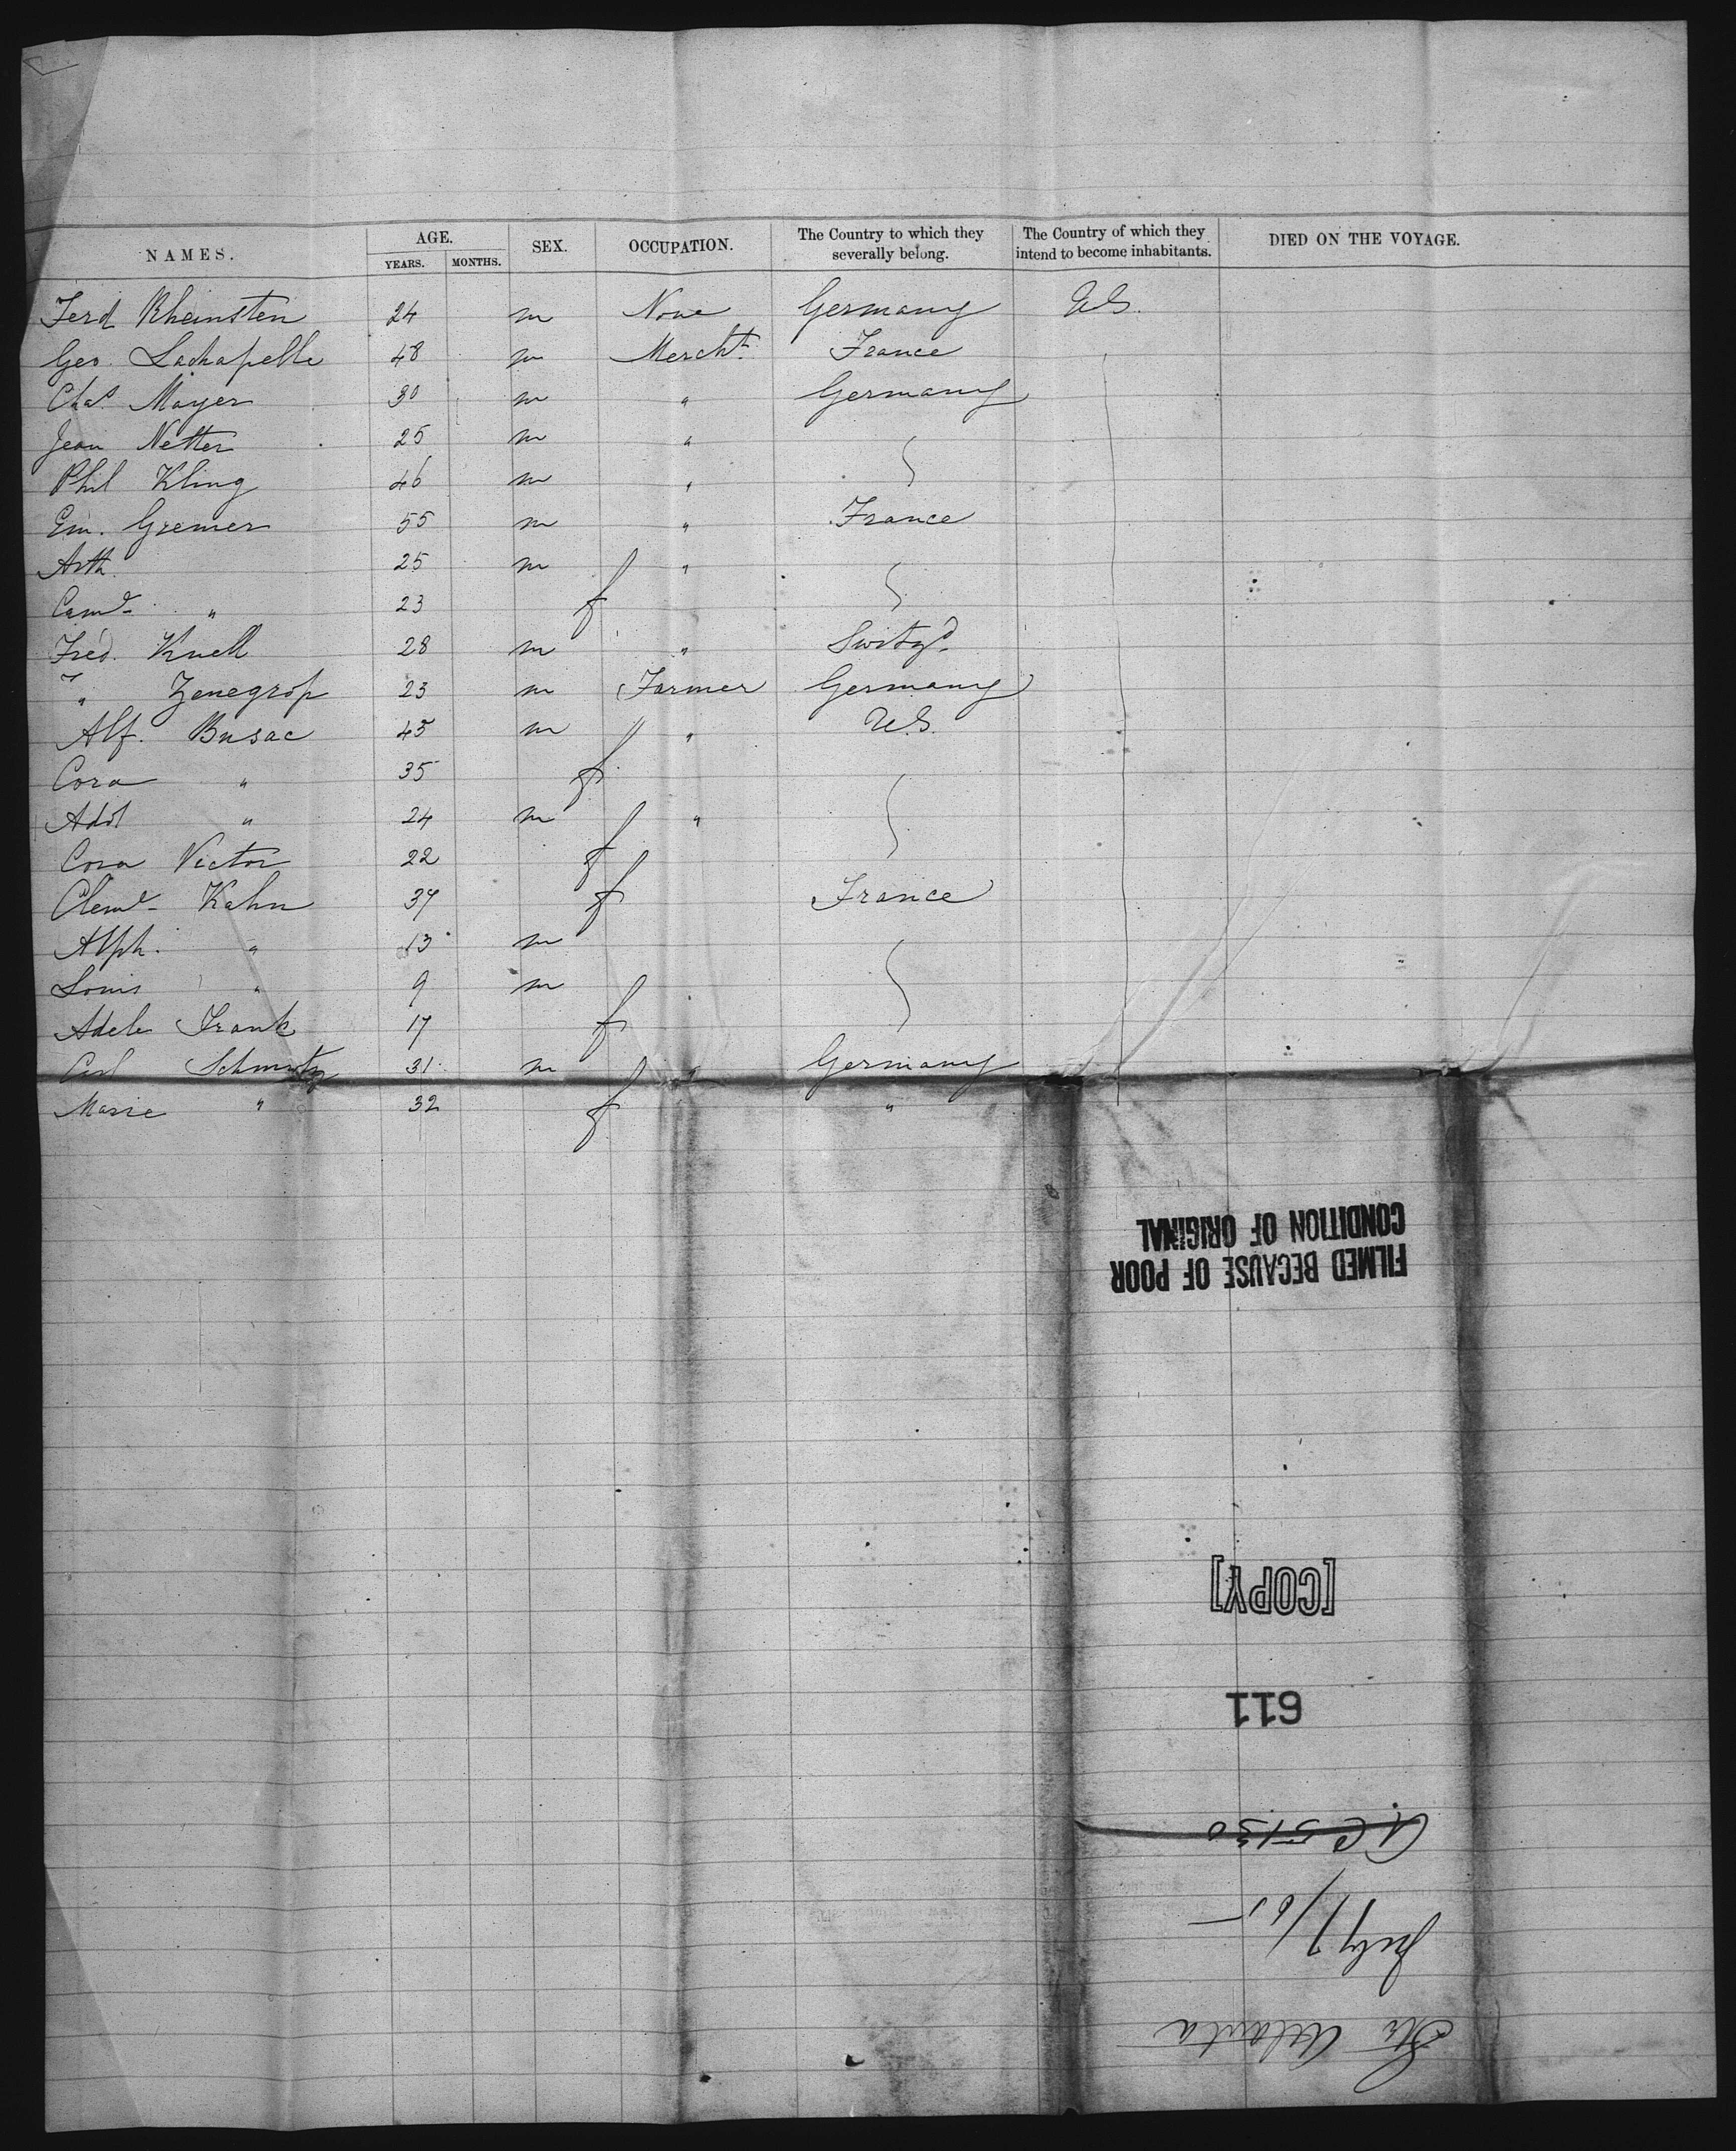 NAMES. AGE. YEARS. MONTHS. SEX. OCCUPATION. The Country to which they severally belong. The Country of which they intend to become inhabitants. DIED ON THE VOYAGE.
Ferd Rheinsten 24 m None Germany U.S.
Geo. Lachapelle 48 m Mercht. France
Chas. Mayer 30 m " Germany
Jean Netter 25 m "
Phil Kling 46 m "
Em. Gremer 55 m " France
Arth. 25 m "
Camе. " 23 f
Fred. Knell 28 m " Switzd.
" Zenegrop 23 m Farmer Germany
Alf. Busac 45 m " U.S.
Cora " 35 f
Adol " 24 m "
Cora Victor 22 f
Cleme. Kahn 37 f France
Alph. " 13 m
Louis " 9 m
Adele Frank 17 f
Carl Schmutz 31 m " Germany
Marie " 32 f "
FILMED BECAUSE OF POOR
CONDITION OF ORIGINAL
[COPY]
611
A.C 5130
July 7/65
Str Atlanta